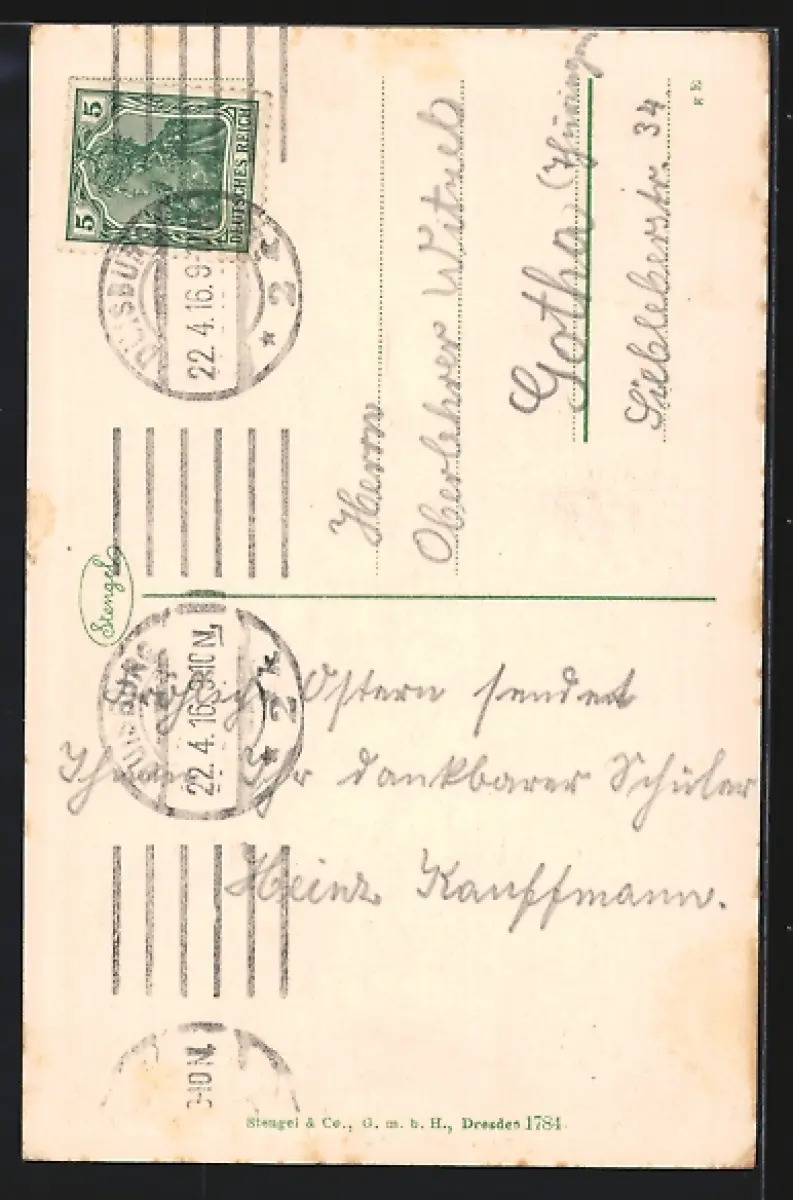 5 5
DEUTSCHES REICH
DUISBURG
22.4.16.9-
* 2 k
Herrn
Oberlehrer
Gotha (Thüringen
Siebleberstr. 34
Stengel
DUISBURG
22.4.16.9-10 N.
* 2 k
Fröhliche Ostern sendet
Ihnen Ihr dankbarer Schüler
Heinz Kauffmann.
9-10 N.
Stengel & Co., G. m. b. H., Dresden 1784